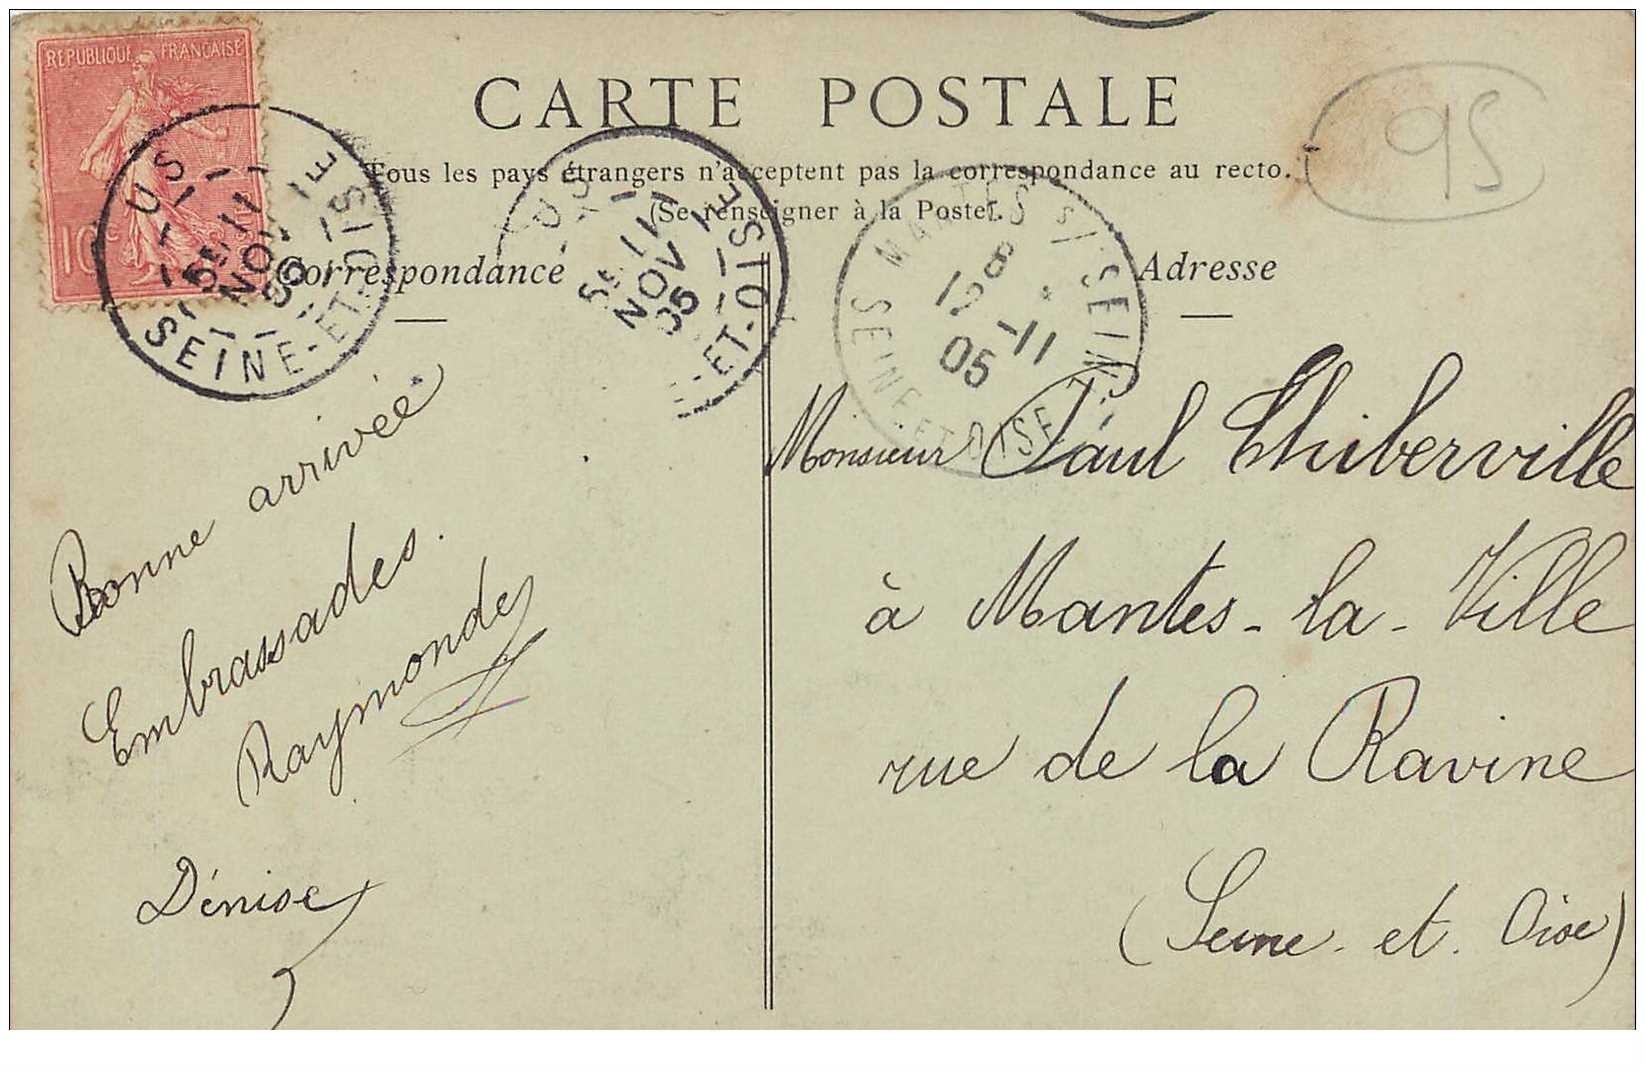 REPUBLIQUE FRANÇAISE
10c
CARTE POSTALE
Tous les pays étrangers n'acceptent pas la correspondance au recto.
(Se renseigner à la Poste).
95
Correspondance
Adresse
US
11
NOV
05
SEINE-ET-OISE
US
11
NOV
05
ET-OISE
MANTES S/ SEINE
8
12-11
05
SEINE-ET-OISE
Bonne arrivée.
Embrassades.
Raymonde
Dénise
Monsieur Paul Thiberville
à Mantes-la-Ville
rue de la Ravine
(Seine et Oise)